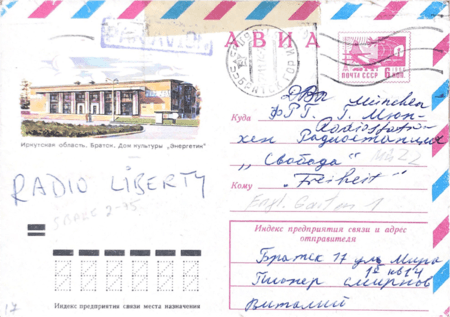 PAR AVION
АВИА
ПОЧТА СССР 6 КОП
Иркутская область. Братск. Дом культуры „Энергетик"
RADIO LIBERTY
Куда
BRD München
ФРГ г. Мюн-
хен Радиостанция
„Свобода"
Кому
„Freiheit"
Engl. Garten 1
Индекс предприятия связи и адрес
отправителя
Братск 17 ул Мира
Пионер Смирнов
Виталий
Индекс предприятия связи места назначения
17